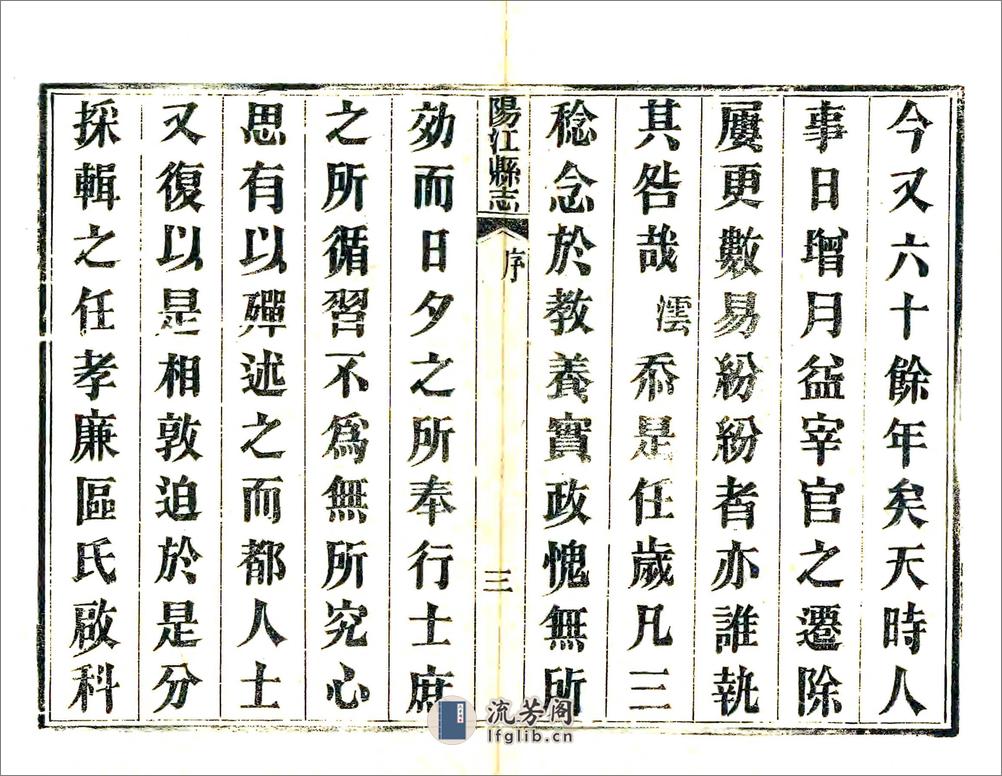 今又六十餘年矣天時人
事日增月益宰官之遷除
屢更數易紛紛者亦誰執
其咎哉澐忝是任歲凡三
稔念於教養實政愧無所
陽江縣志
序
三
効而日夕之所奉行士庶
之所循習不為無所究心
思有以殫述之而都人士
又復以是相敦迫於是分
採輯之任孝廉區氏啟科
流芳阁
lfglib.cn